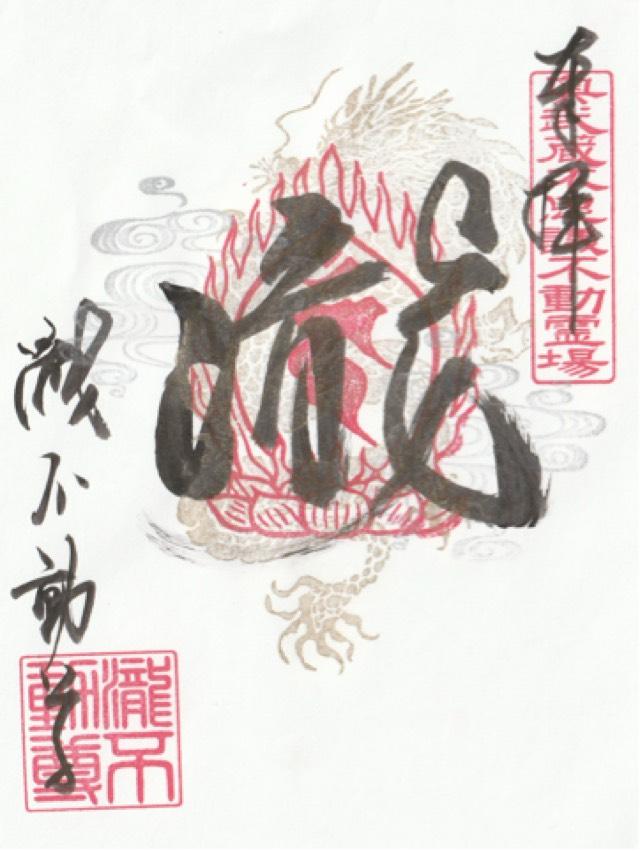 奉拝
奥武蔵不動霊場
瀧
瀧不動尊
瀧不
動尊